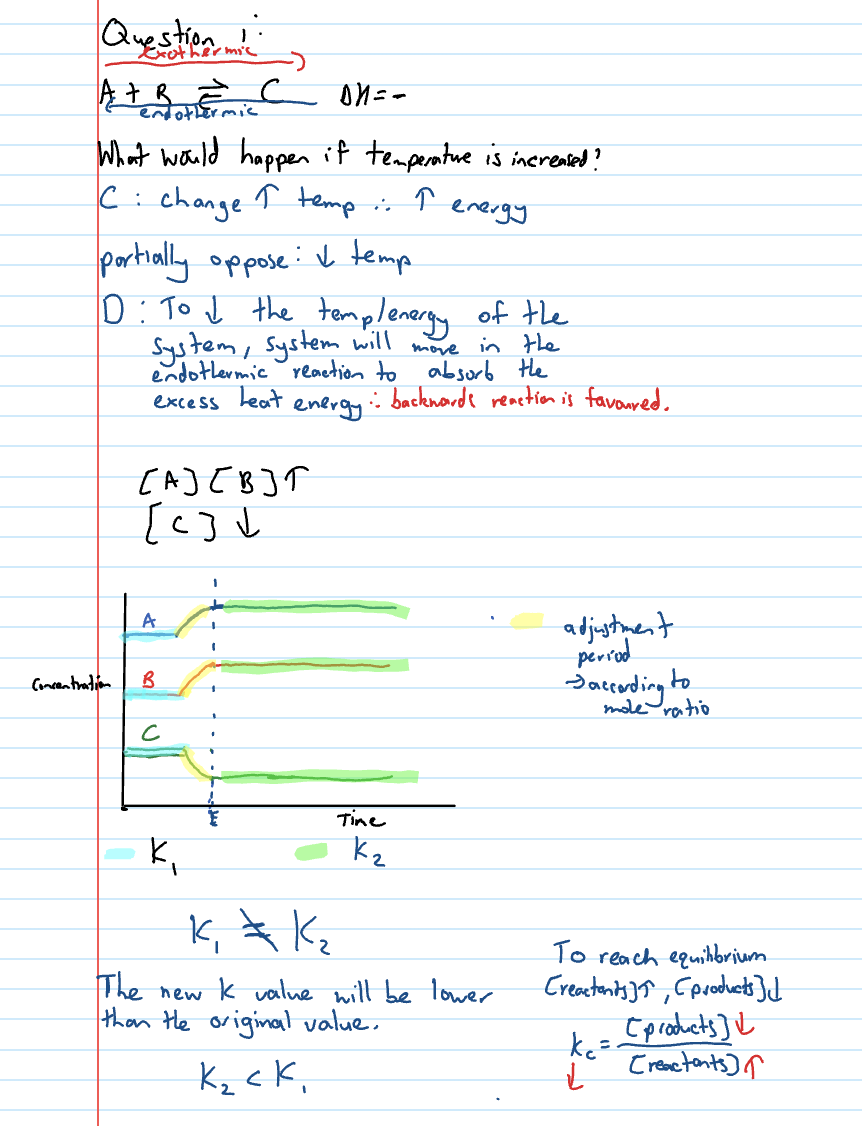 Question 1:
exothermic
A + B ⇌ C ΔH = -
endothermic
What would happen if temperature is increased?
C : change ↑ temp ∴ ↑ energy
partially oppose: ↓ temp
D : To ↓ the temp/energy of the
system, system will move in the
endothermic reaction to absorb the
excess heat energy ∴ backwards reaction is favoured.
[A] [B] ↑
[C] ↓
A
B
C
Concentration
E
Time
adjustment
period
→ according to
mole ratio
K₁
K₂
K₁ ≠ K₂
The new K value will be lower
than the original value.
K₂ < K₁
To reach equilibrium
[reactants]↑, [products]↓
Kc = [products]↓
[reactants]↑
↓